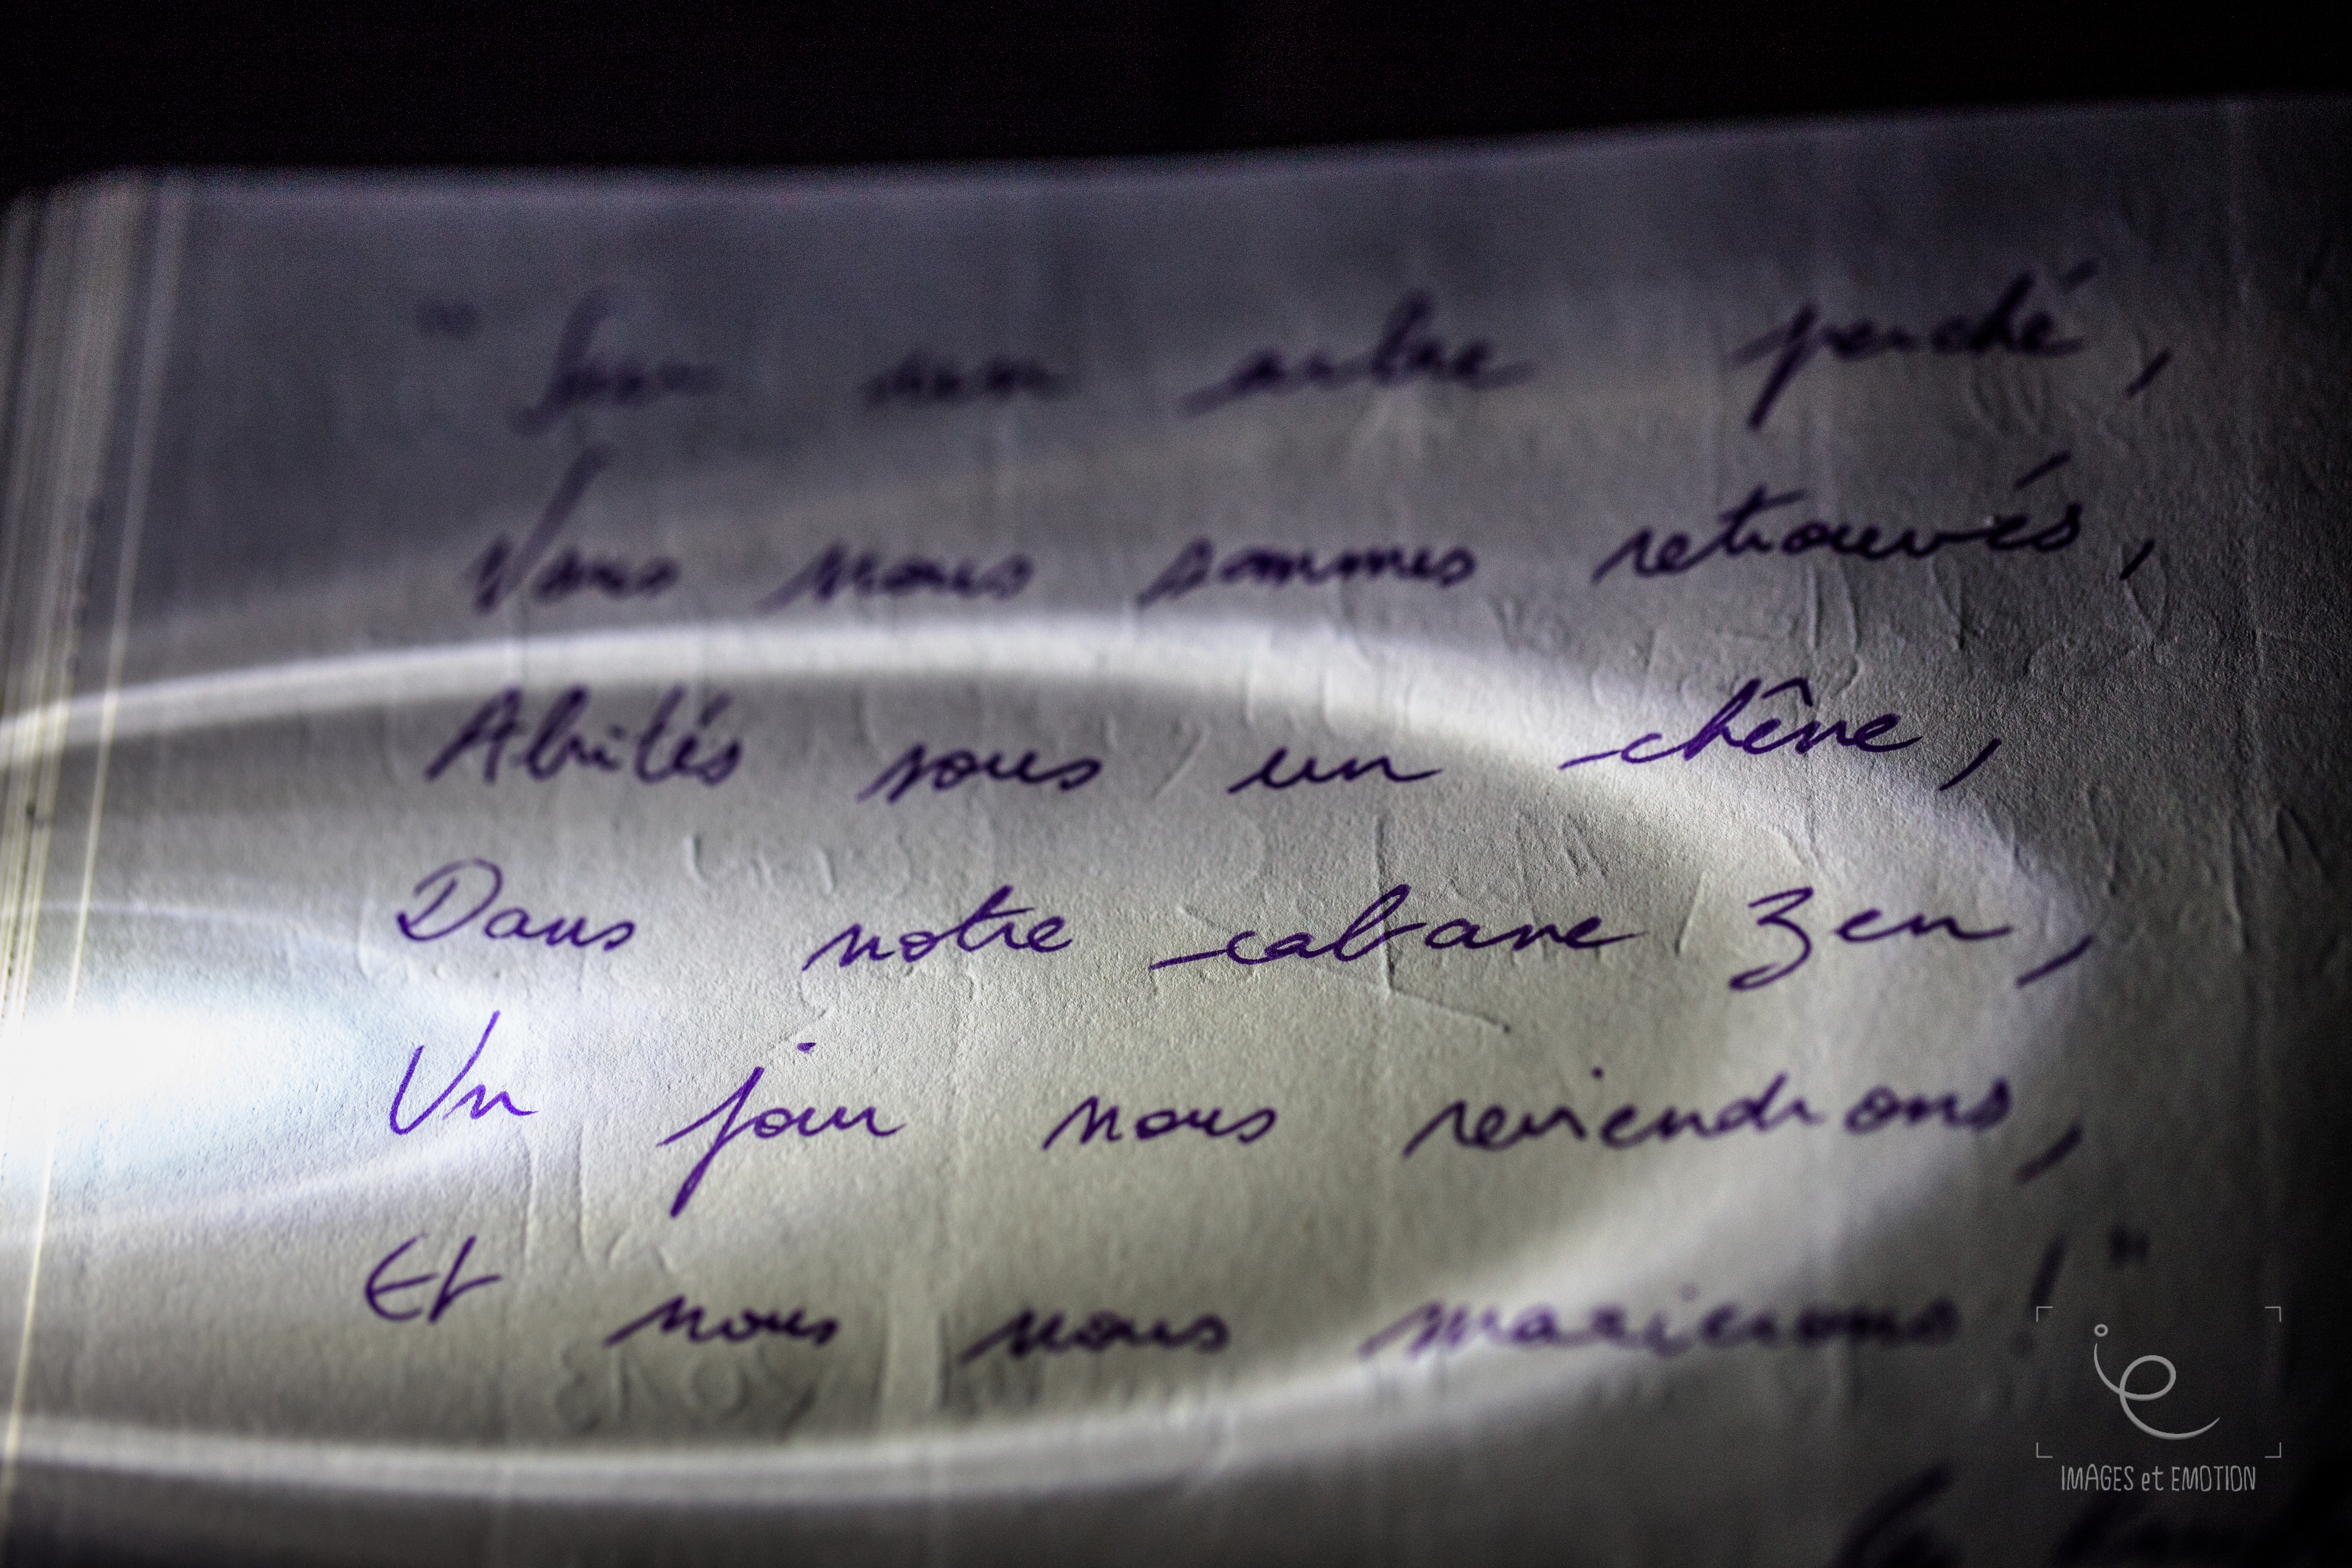 " Sur un arbre perché,
Nous nous sommes retrouvés,
Abrités sous un chêne,
Dans notre cabane Zen,
Un jour nous reviendrons,
Et nous nous marierons ! "
ie
IMAGES et EMOTION